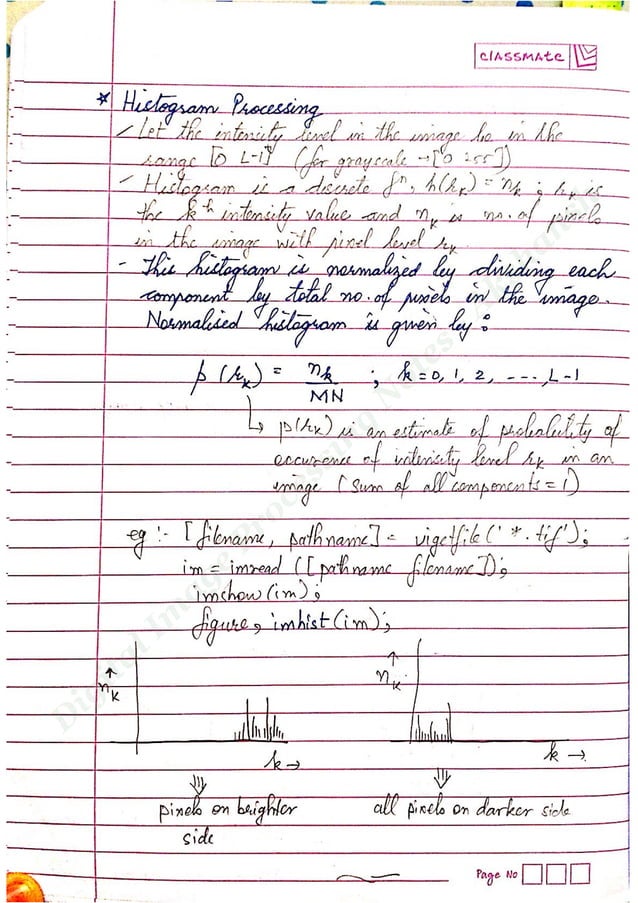 classmate
* Histogram Processing
- Let the intensity level in the image be in the
range [0 L-1] (for grayscale → [0 255])
- Histogram is a discrete fⁿ, h(rₖ) = nₖ ; rₖ is
the kᵗʰ intensity value and nₖ is no. of pixels
in the image with pixel level rₖ.
- This histogram is normalized by dividing each
component by total no. of pixels in the image.
Normalised histogram is given by :
p (rₖ) = nₖ / MN ; k = 0, 1, 2, ---, L-1
↳ p(rₖ) is an estimate of probability of
occurance of intensity level rₖ in an
image (sum of all components = 1)
eg :- [filename, pathname] = uigetfile('*.tif');
im = imread ([pathname filename]);
imshow (im);
figure, imhist (im);
↑ nₖ
k →
pixels on brighter
side
↑ nₖ
k →
all pixels on darker side
Page No
Digital Image Processing Notes